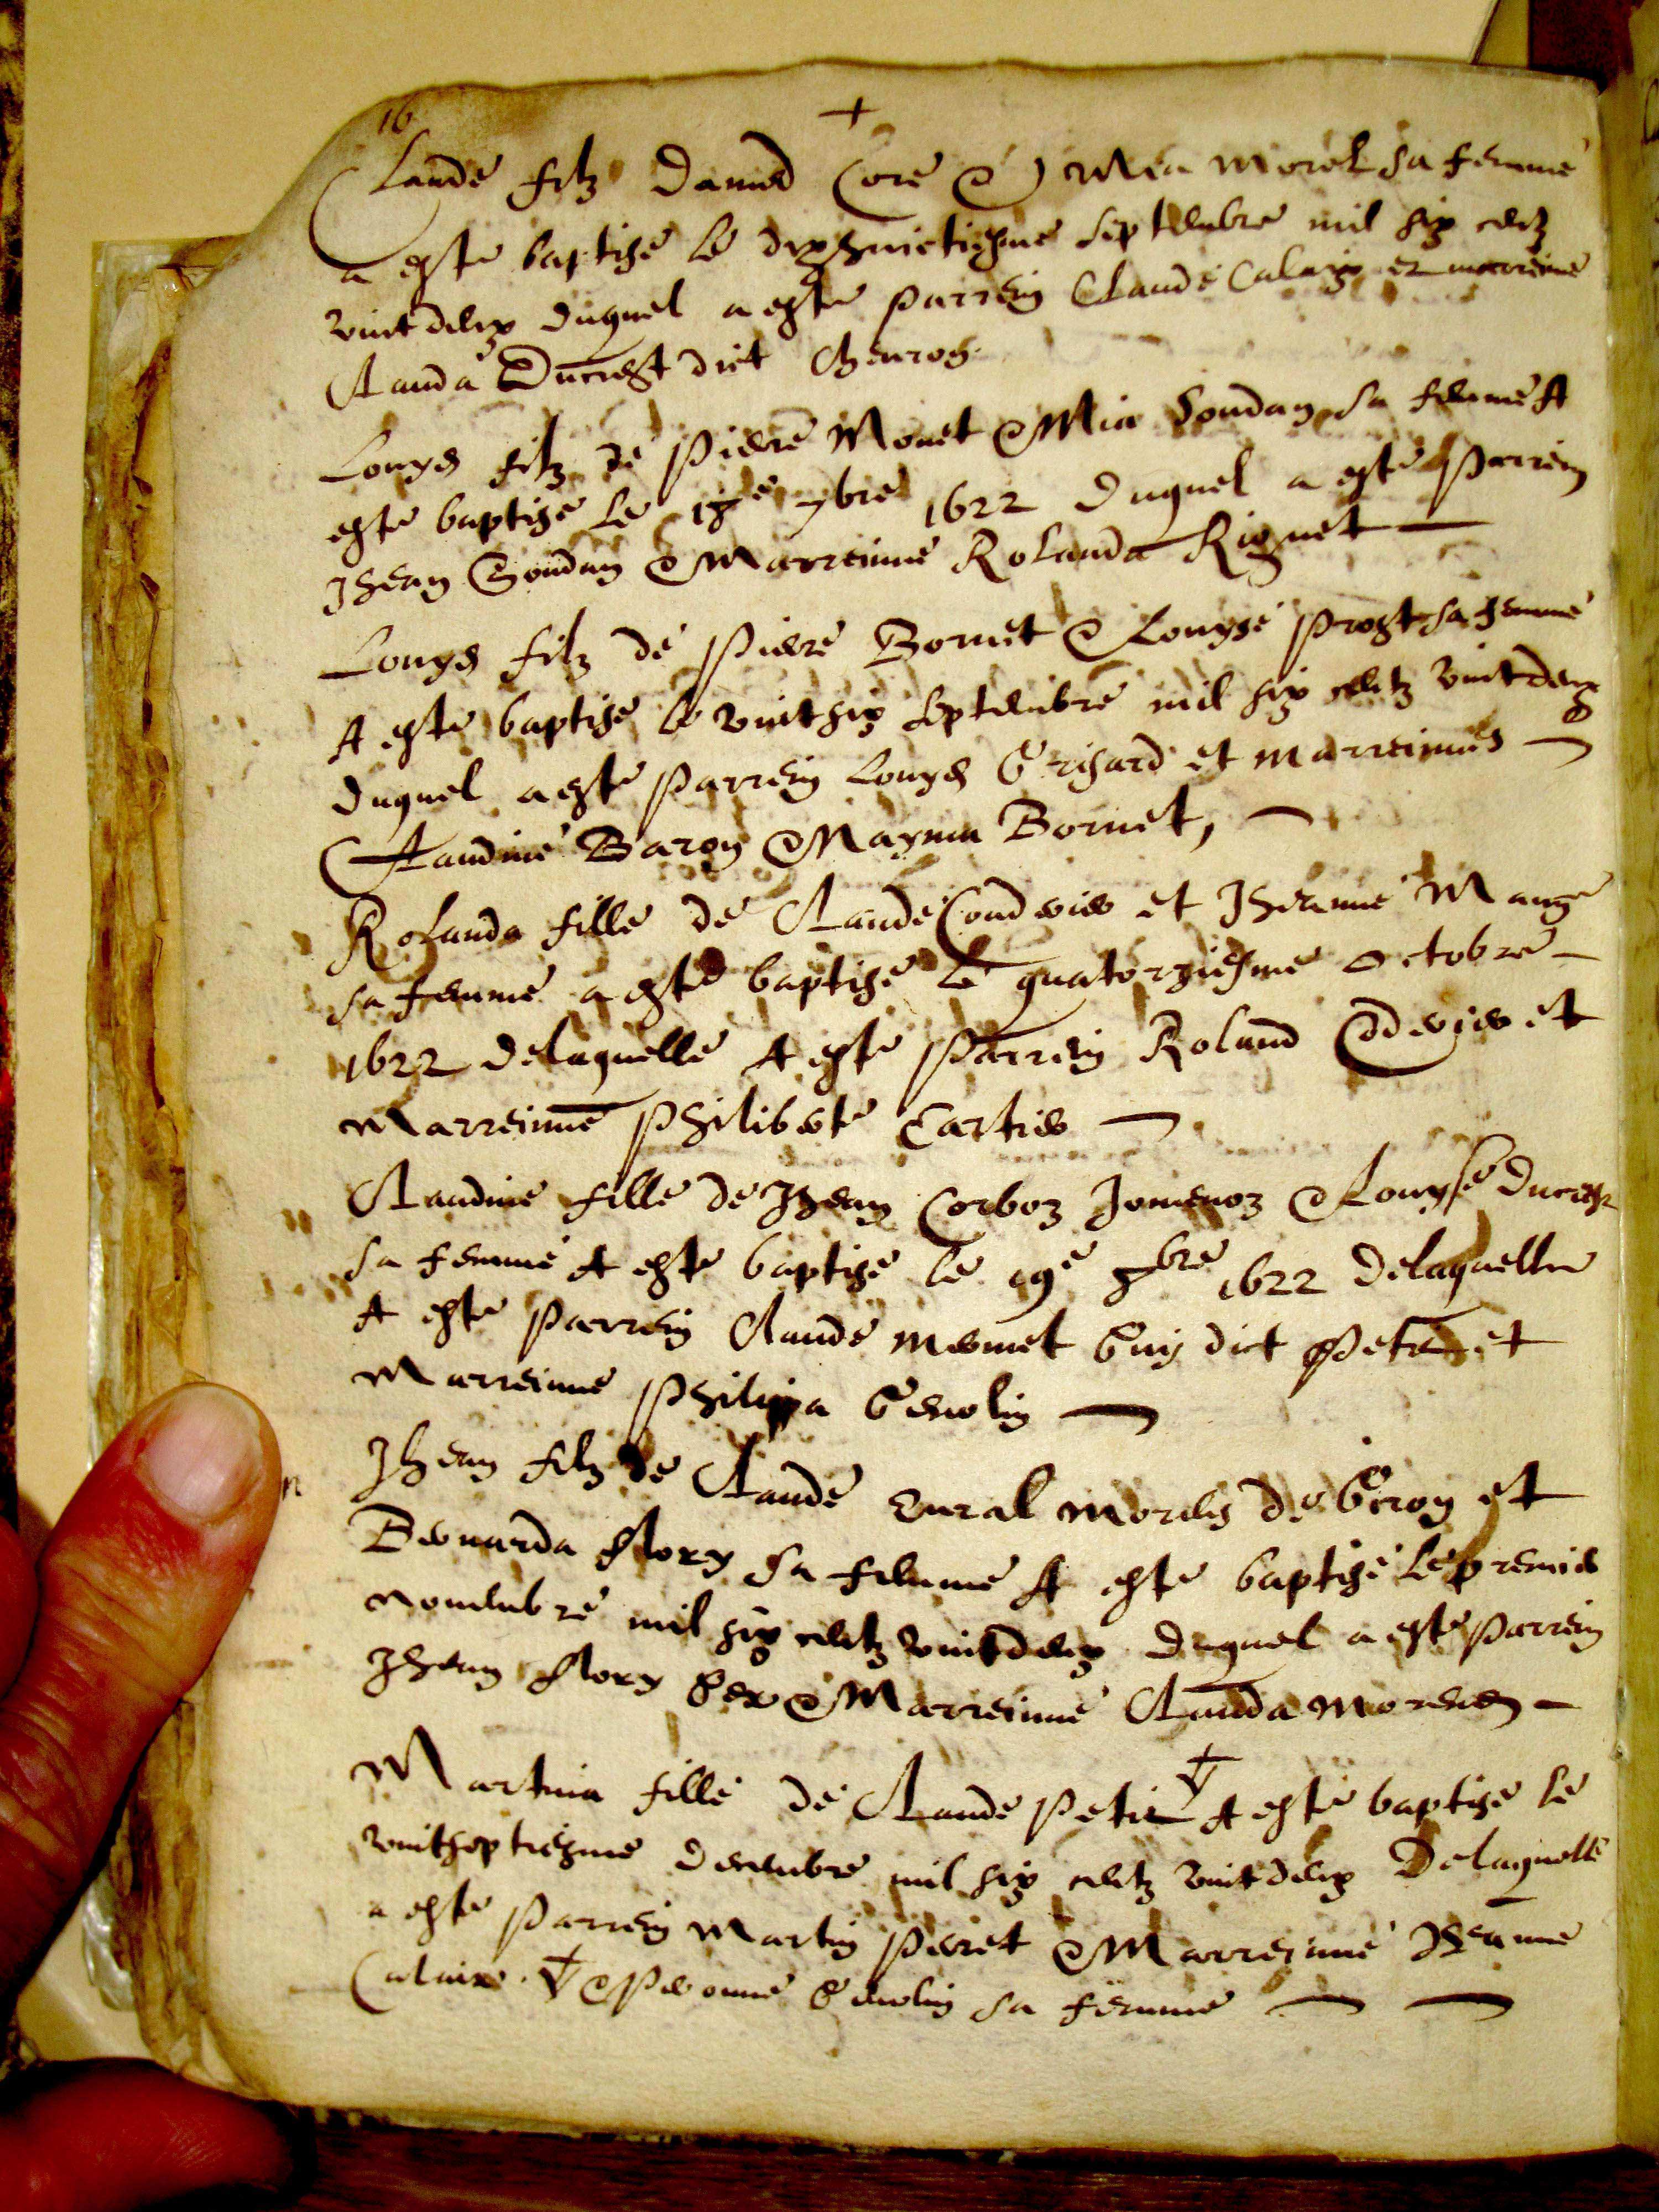 16 +
Claude filz David Core & Mia Morel sa femme
a este baptisé le dixhuictiesme septembre mil six centz
vint deux duquel a este parrein Claude Calaix et marreine
Clauda Ducrest dict
Louys filz de Pierre Monet & Mia Soudan sa femme A
este baptisé le 18e 7bre 1622 duquel a este Parrein
Jhean Soudan & Marreinne Rolanda Rignet
Louys filz de Pierre Bornet & Louyse Prost sa femme
A este baptisé le vint six septembre mil six centz vint deux
duquel a este Parrein Louys Grisard et marreinnes
Claudine Baron & Mayma Bornet,
Rolanda fille de Claude Condevier et Jheanne Mange
sa femme a este baptisé le quatorziesme octobre
1622 delaquelle A este Parrein Roland Codevier et
Marreinne Philiberte Cartier
Claudine fille de Jhean Corboz Jomenoz & Louyse Ducrest
sa femme A este baptisé le 19e 8bre 1622 delaquelle
A este Parrein Claude Mermet Guy dict Petit et
Marreinne Philippa Genolin
Jhean filz de Claude Cural Morens de Giron et
Bernarda Flory sa femme A este baptisé le premier
nouembre mil six centz vint deux duquel a este Parrein
Jhean Flory Gex & Marreinne Clauda
Martina fille de Claude Petit A este baptisé le
vintseptiesme decembre mil six centz vint deux Delaquelle
a este Parrein Martin Perret & Marreinne Jheanne
Calaix. & Pernonne Genolin sa femme